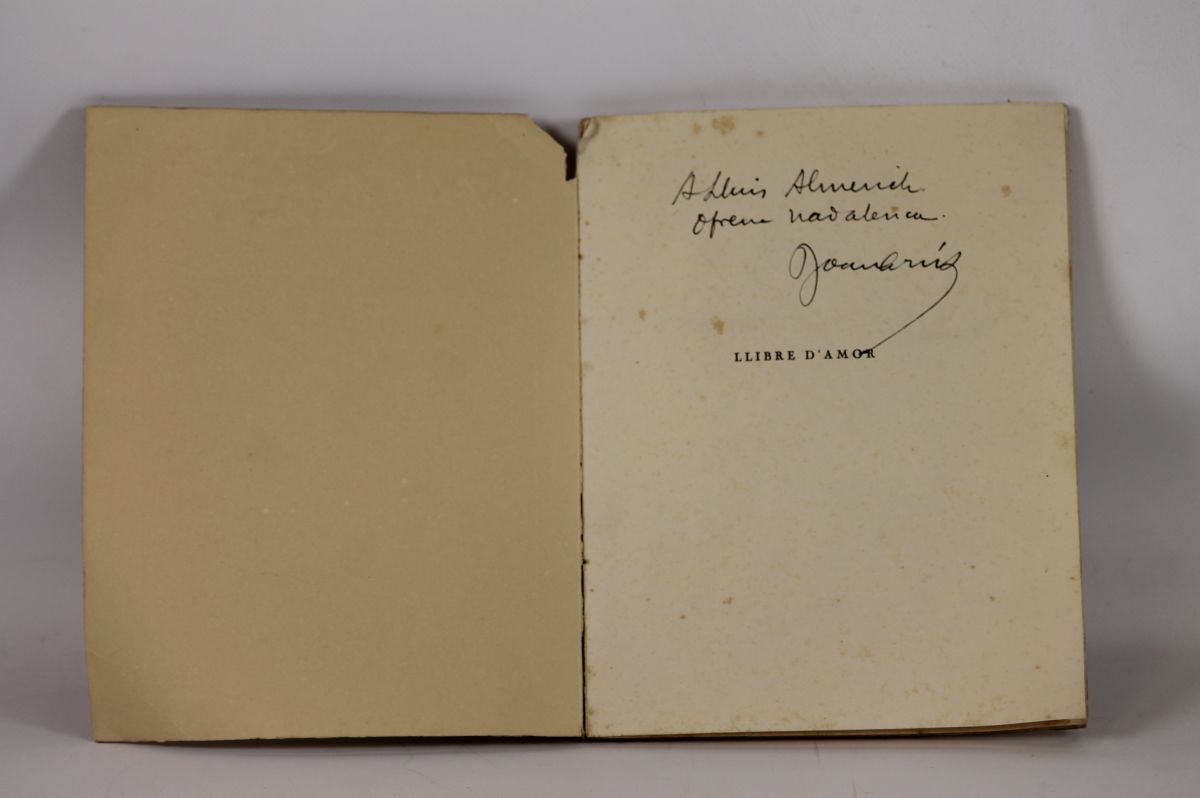 A Lluis Almerich
Ofrena nadalenca.
Joan Arús
LLIBRE D'AMOR